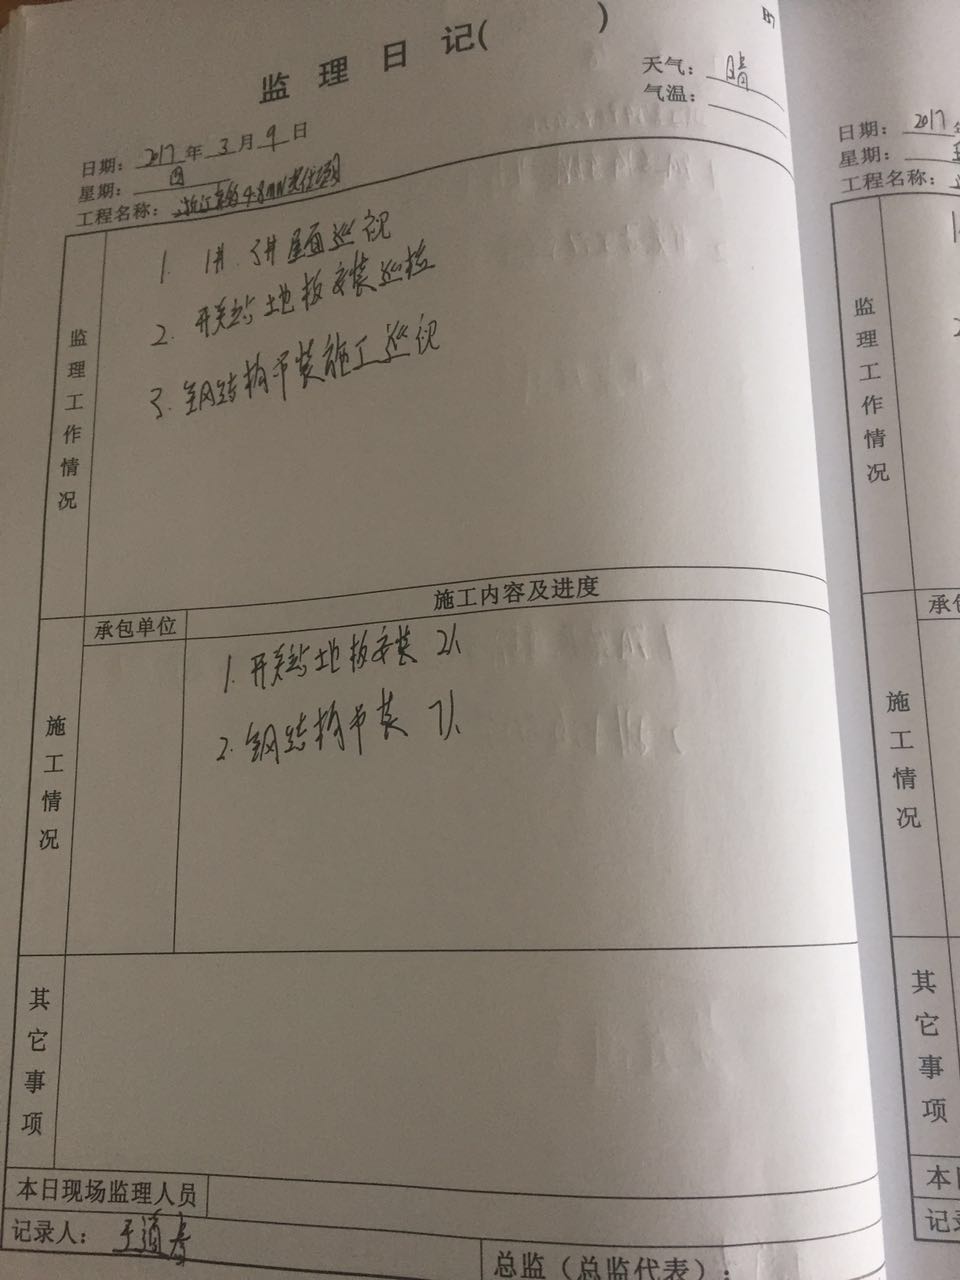 监理日记( )
天气: 晴
气温:
日期: 2017年3月9日
星期: 四
工程名称: 浙江 4.8MW光伏项目
监理工作情况
1. 1#、3#屋面巡视
2. 开关站地板安装巡检
3. 钢结构吊装施工巡视
施工情况
承包单位
施工内容及进度
1. 开关站地板安装 2人
2. 钢结构吊装 7人
其它事项
本日现场监理人员
记录人: 王道
总监(总监代表):
日期: 2017年
星期:
工程名称:
监理工作情况
1
2
施工情况
承包
其它事项
本日
记录